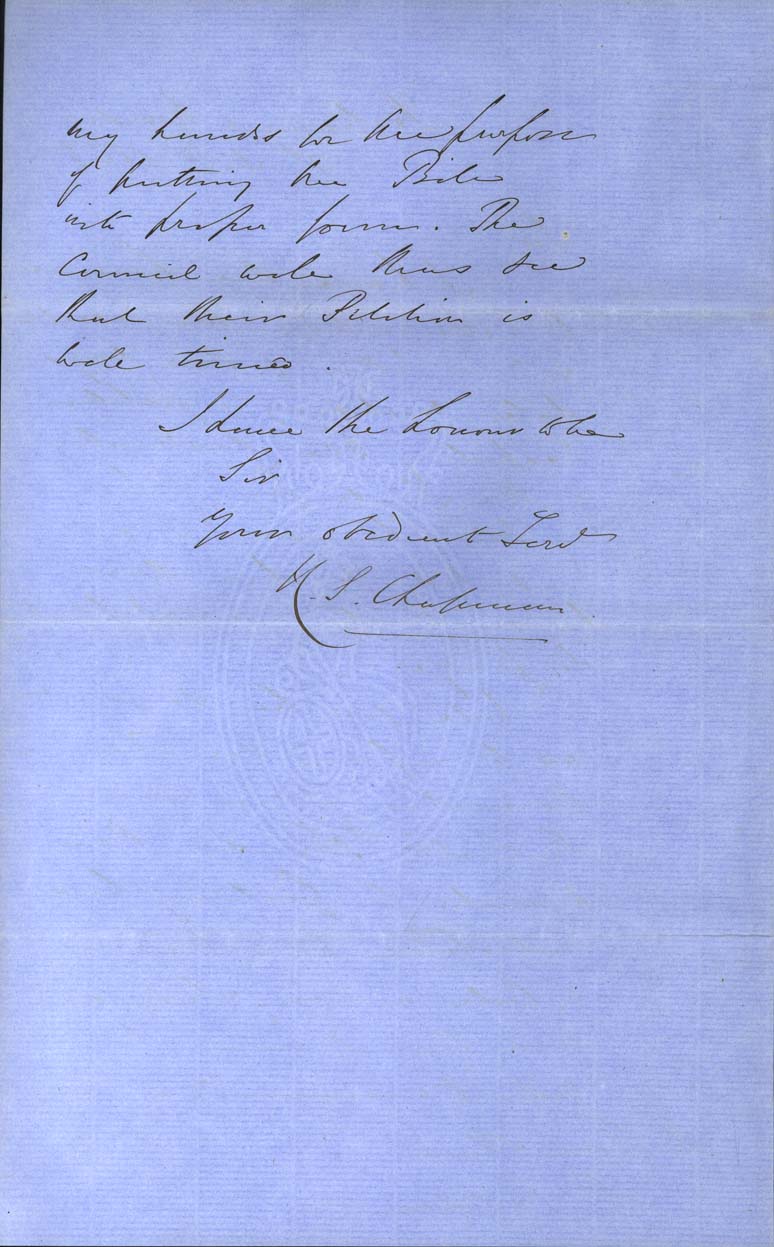 my hands for the purpose
of putting the Bill
into proper form. The
Council will thus see
that their Petition is
well timed.
I have the honour to be
Sir
Your obedient Servt
H. S. Chapman